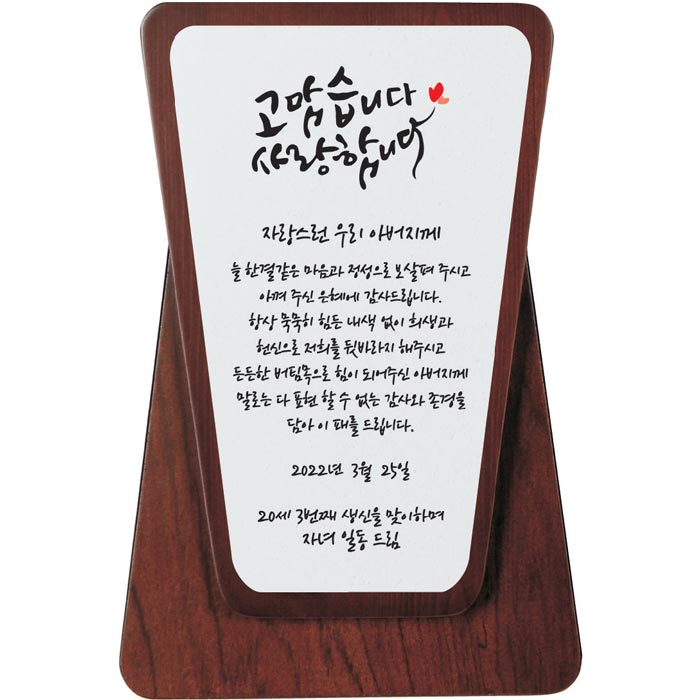 고맙습니다
사랑합니다
자랑스런 우리 아버지께
늘 한결같은 마음과 정성으로 보살펴 주시고
아껴 주신 은혜에 감사드립니다.
항상 묵묵히 힘든 내색 없이 희생과
헌신으로 저희를 뒷바라지 해주시고
든든한 버팀목으로 힘이 되어주신 아버지께
말로는 다 표현 할 수 없는 감사와 존경을
담아 이 패를 드립니다.
2022년 3월 25일
20세 3번째 생신을 맞이하며
자녀 일동 드림